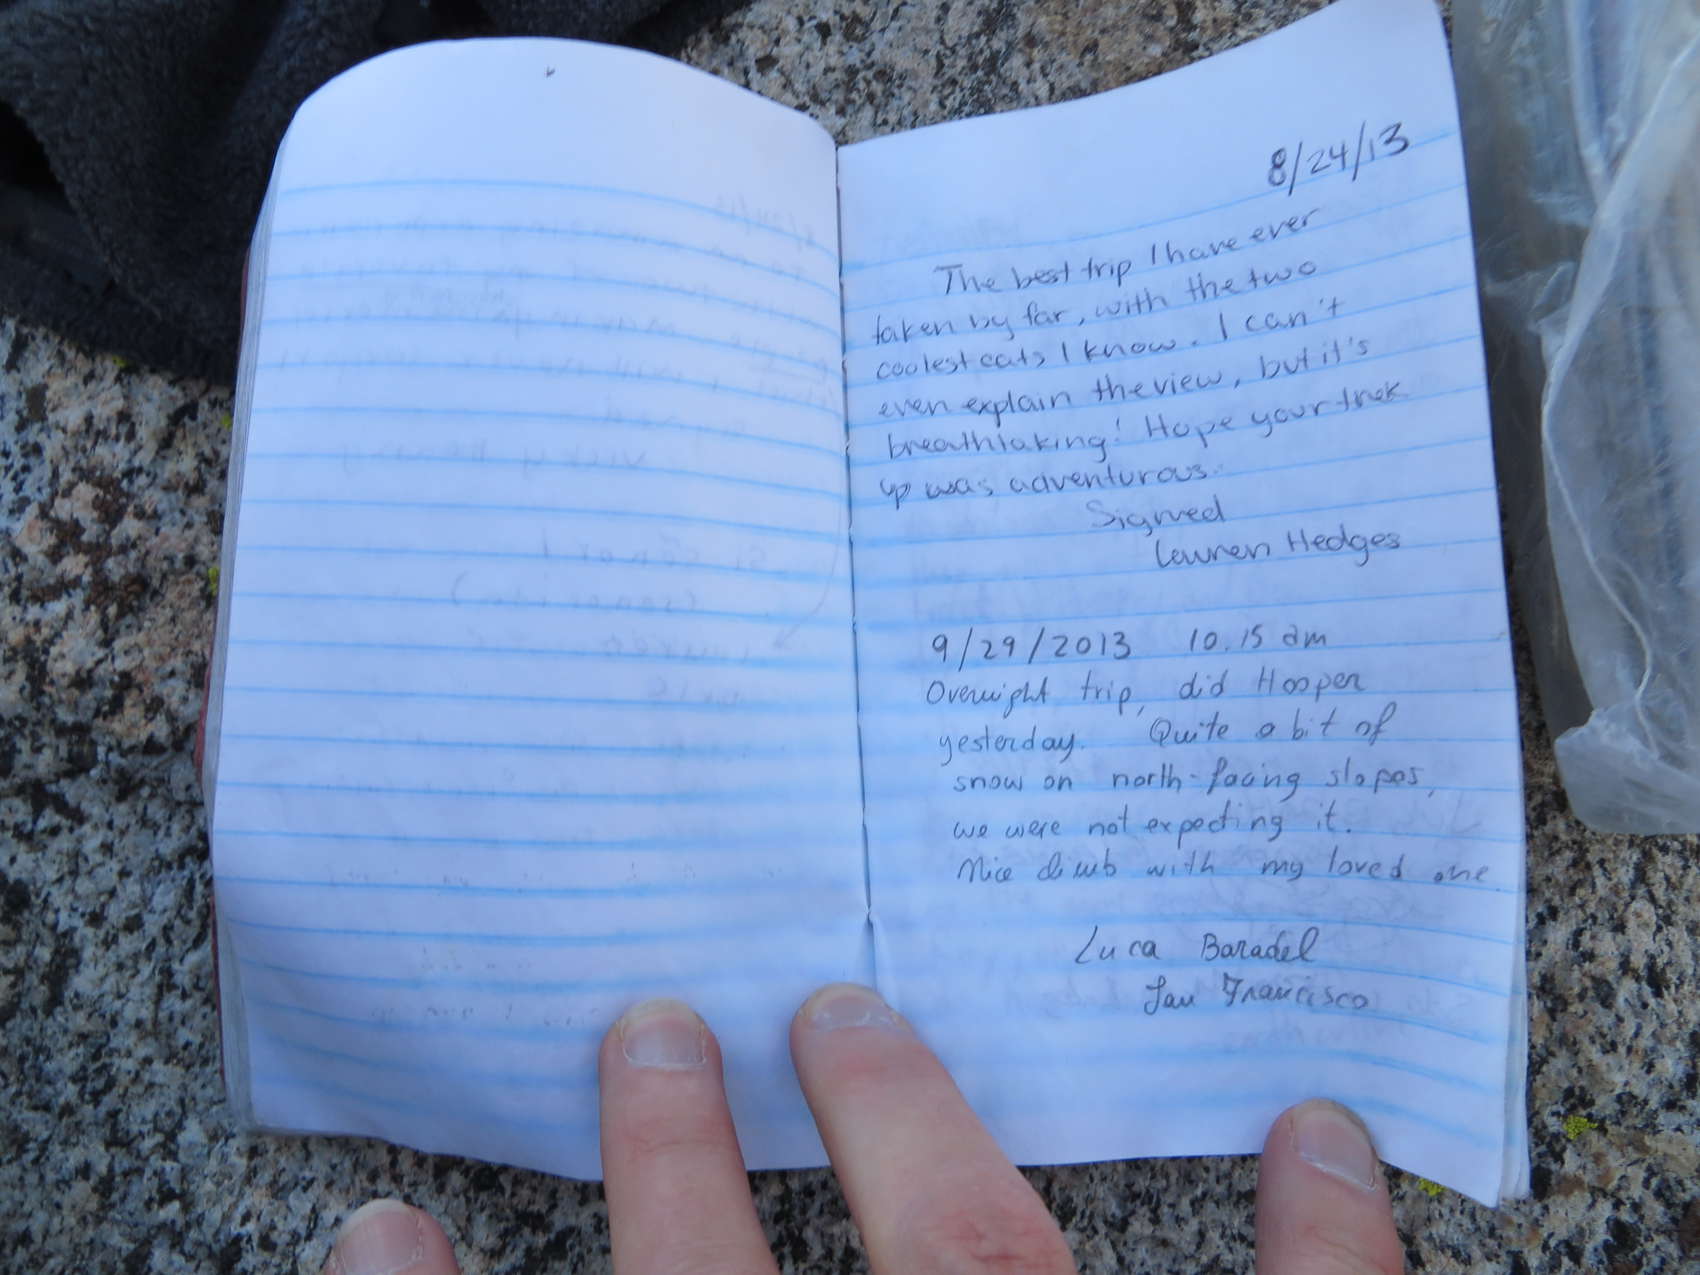 8/24/13
The best trip I have ever
taken by far, with the two
coolest cats I know. I can't
even explain the view, but it's
breathtaking! Hope your trek
up was adventurous.
Signed
Lauren Hedges
9/29/2013 10.15 am
Overnight trip, did Hooper
yesterday. Quite a bit of
snow on north-facing slopes,
we were not expecting it.
Nice climb with my loved one.
Luca Baradel
San Francisco